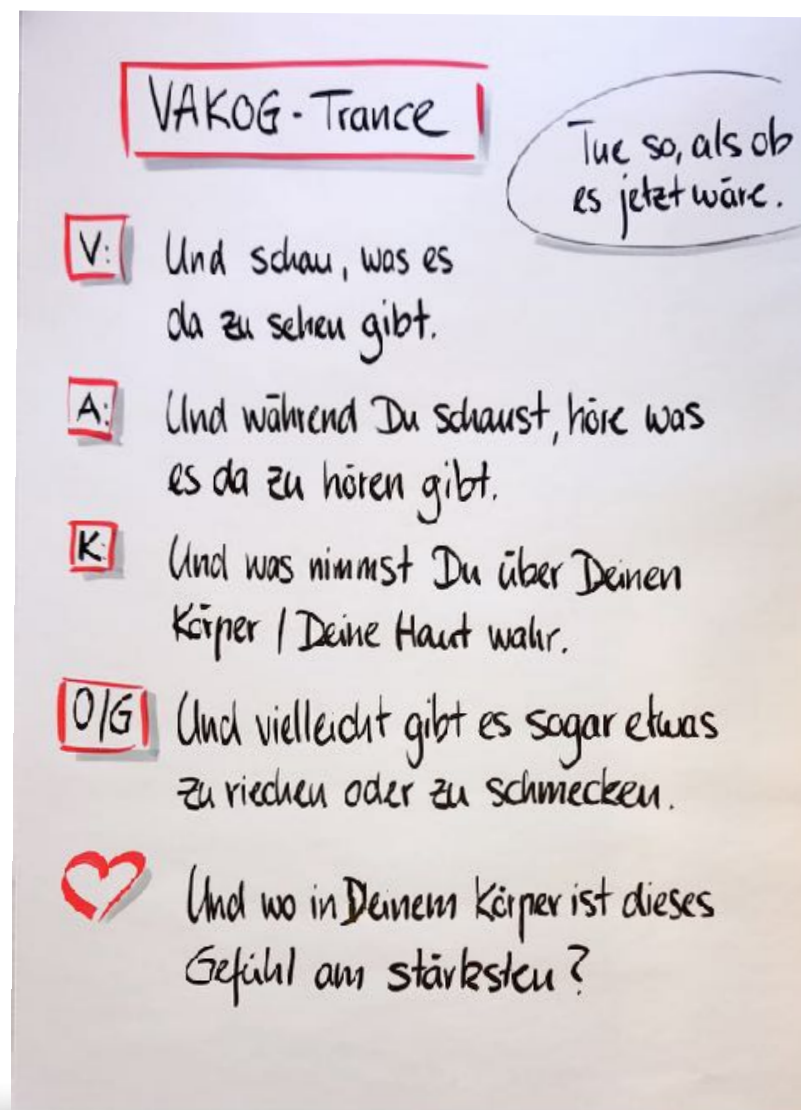 VAKOG - Trance
Tue so, als ob
es jetzt wäre.
V: Und schau, was es
da zu sehen gibt.
A: Und während Du schaust, höre was
es da zu hören gibt.
K: Und was nimmst Du über Deinen
Körper / Deine Haut wahr.
O/G Und vielleicht gibt es sogar etwas
zu riechen oder zu schmecken.
Und wo in Deinem Körper ist dieses
Gefühl am stärksten?